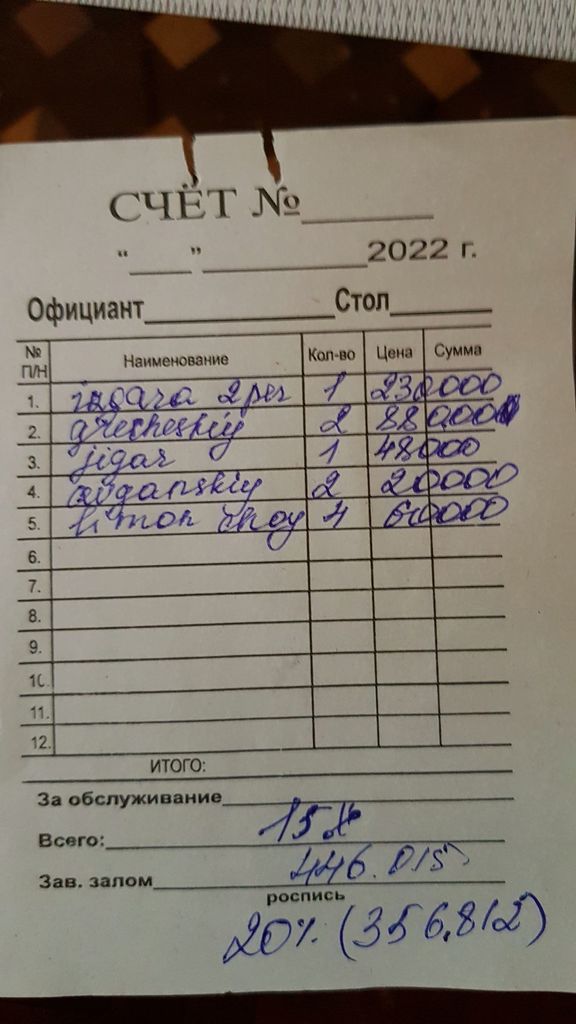 СЧЁТ №
“ ” 2022 г.
Официант Стол
№ П/Н Наименование Кол-во Цена Сумма
1. 2per 1 230000
2. grecheskiy 2 88.000
3. jigar 1 48000
4. 2 20000
5. limon choy 4 60000
6.
7.
8.
9.
10.
11.
12.
ИТОГО:
За обслуживание
15%
Всего:
446.015
Зав. залом
роспись
20% (356.812)